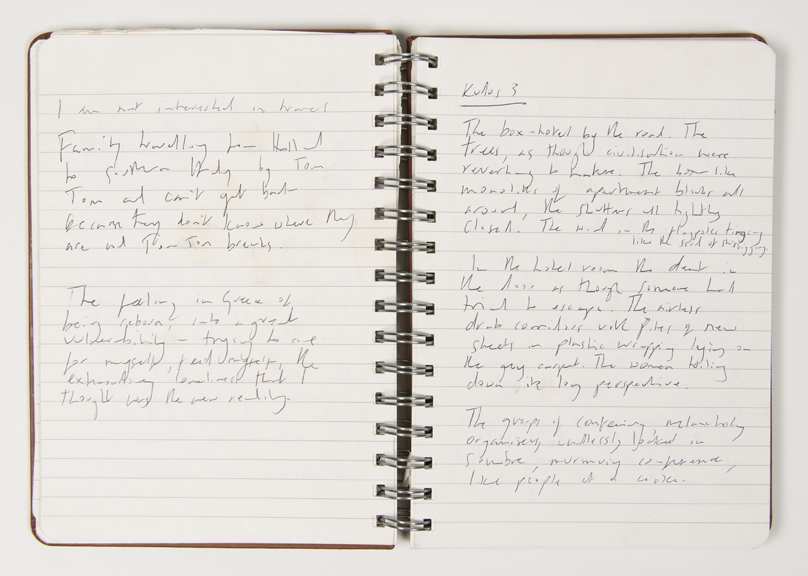 I am not interested in travel
Family travelling from Holland
to Southern Italy by Tom
Tom and can't get back
because they don't know where they
are and Tom Tom breaks.
The feeling in Greece of
being reborn, into a great
vulnerability – trying to care
for myself, feed myself, the
extraordinary loneliness that I
thought was the new reality.
Kudos 3
The box-hotel by the road. The
trees, as though civilisation were
reverting to nature. The box-like
monoliths of apartment blocks all
around, the shutters all tightly
closed. The wind in the flagpoles
like the sound of shipping.
In the hotel room the dent in
the door as though someone had
tried to escape. The airless
drab corridors with piles of new
sheets in plastic wrapping lying on
the grey carpet. The women toiling
down its long perspective.
The groups of conferring, melancholy
organisers, endlessly locked in
sombre, murmuring conference,
like people at a wake.